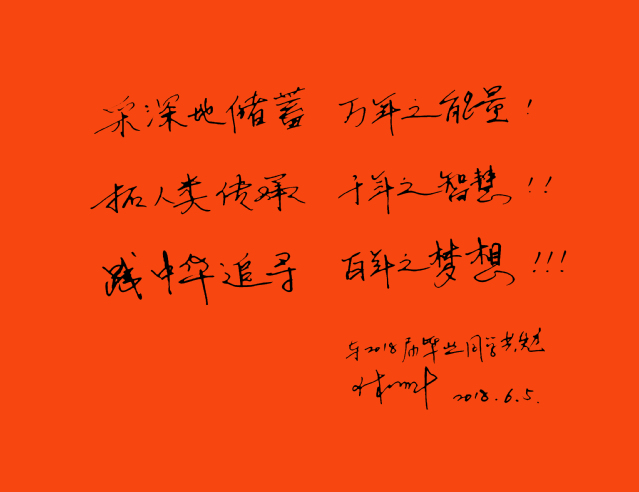 采深地储蓄 万年之能量!
拓人类传承 千年之智慧!!
践中华追寻 百年之梦想!!!
与2018届毕业同学共勉
2018.6.5.